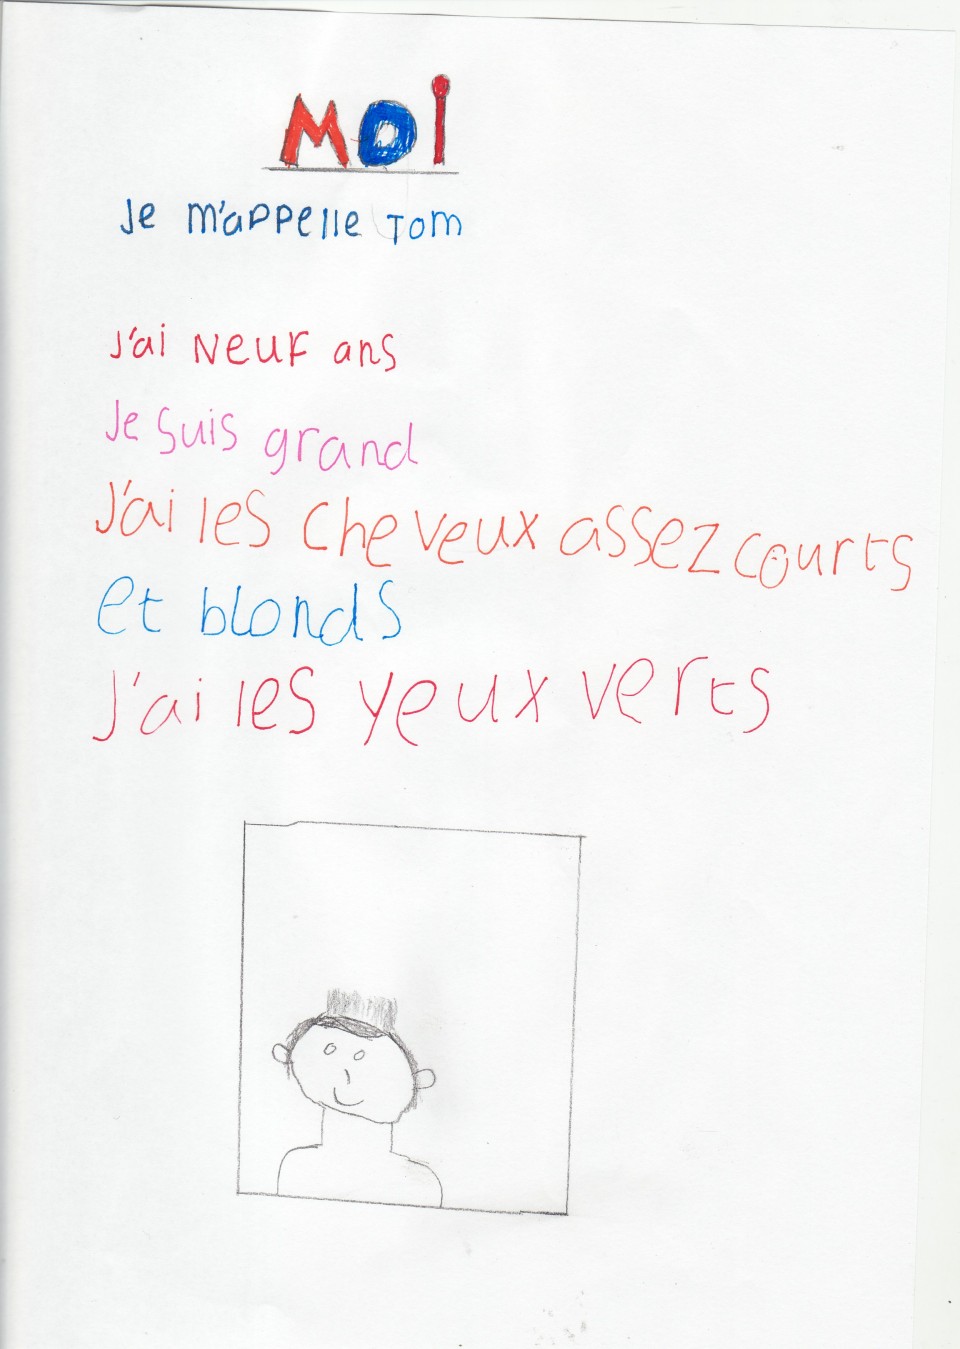 MOi
Je m'appelle Tom
J'ai Neuf ans
Je suis grand
J'ai les cheveux assez courts
et blonds
J'ai les yeux verts